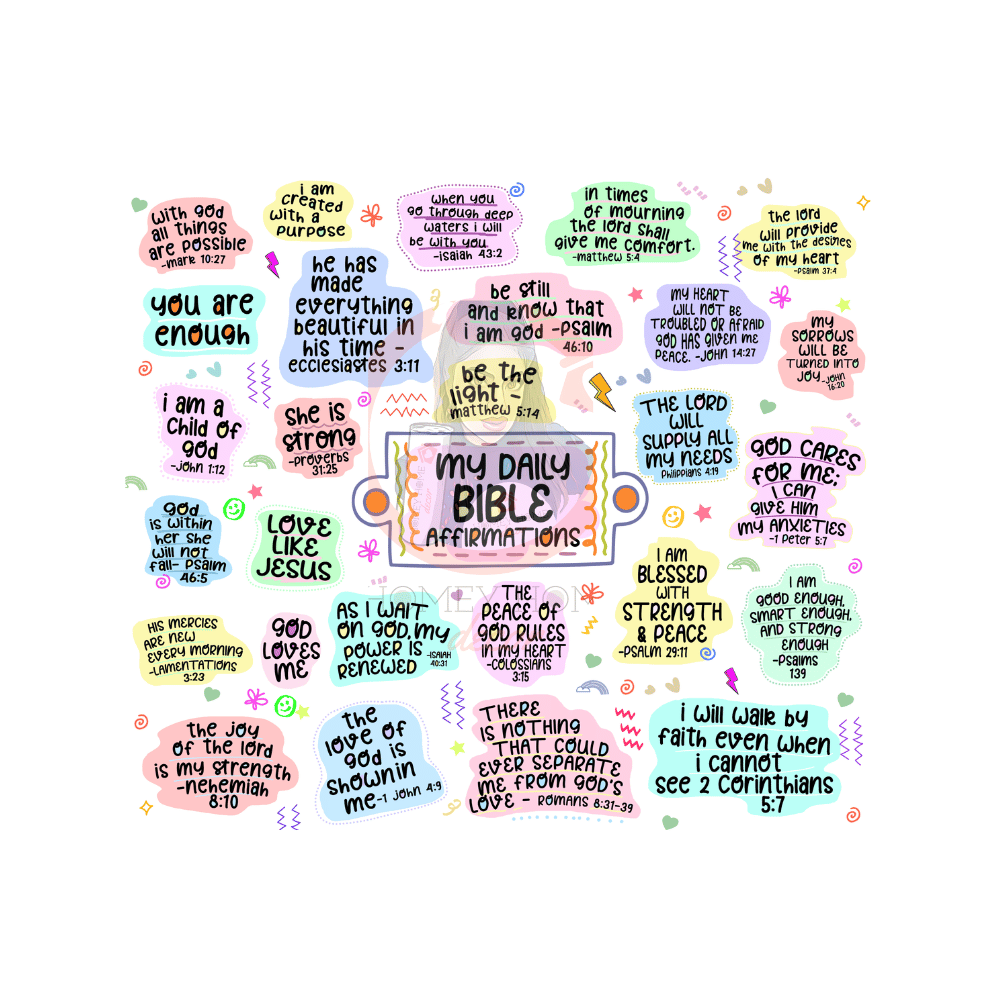 with god
all things
are possible
-mark 10:27
i am
created
with a
purpose
when you
go through deep
waters i will
be with you
-isaiah 43:2
in times
of mourning
the lord shall
give me comfort.
-matthew 5:4
the lord
will provide
me with the desires
of my heart
-psalm 37:4
you are
enough
he has
made
everything
beautiful in
his time -
ecclesiastes 3:11
be still
and know that
i am god -psalm
46:10
MY HEART
WILL NOT BE
TROUBLED OR AFRAID
GOD HAS GIVEN ME
PEACE. -JOHN 14:27
MY
SORROWS
WILL BE
TURNED INTO
JOY -JOHN
16:20
be the
light -
matthew 5:14
i am a
child of
god
-john 1:12
she is
strong
-proverbs
31:25
THE LORD
WILL
SUPPLY ALL
MY NEEDS
Philippians 4:19
GOD CARES
FOR ME;
I CAN
GIVE HIM
MY ANXIETIES
-1 Peter 5:7
MY DAILY
BIBLE
AFFIRMATIONS
god
is within
her she
will not
fall- psalm
46:5
LOVE
LIKE
JESUS
I AM
BLESSED
WITH
STRENGTH
& PEACE
-PSALM 29:11
I AM
GOOD ENOUGH,
SMART ENOUGH,
AND STRONG
ENOUGH
-PSALMS
139
HIS MERCIES
ARE NEW
EVERY MORNING
-LAMENTATIONS
3:23
GOD
LOVES
ME
AS I WAIT
ON GOD, MY
POWER IS
RENEWED -ISAIAH
40:31
THE
PEACE OF
GOD RULES
IN MY HEART
-COLOSSIANS
3:15
the joy
of the lord
is my strength
-nehemiah
8:10
the
love of
god is
shown in
me -1 john 4:9
THERE
IS NOTHING
THAT COULD
EVER SEPARATE
ME FROM GOD'S
LOVE - ROMANS 8:31-39
i will walk by
faith even when
i cannot
see 2 Corinthians
5:7